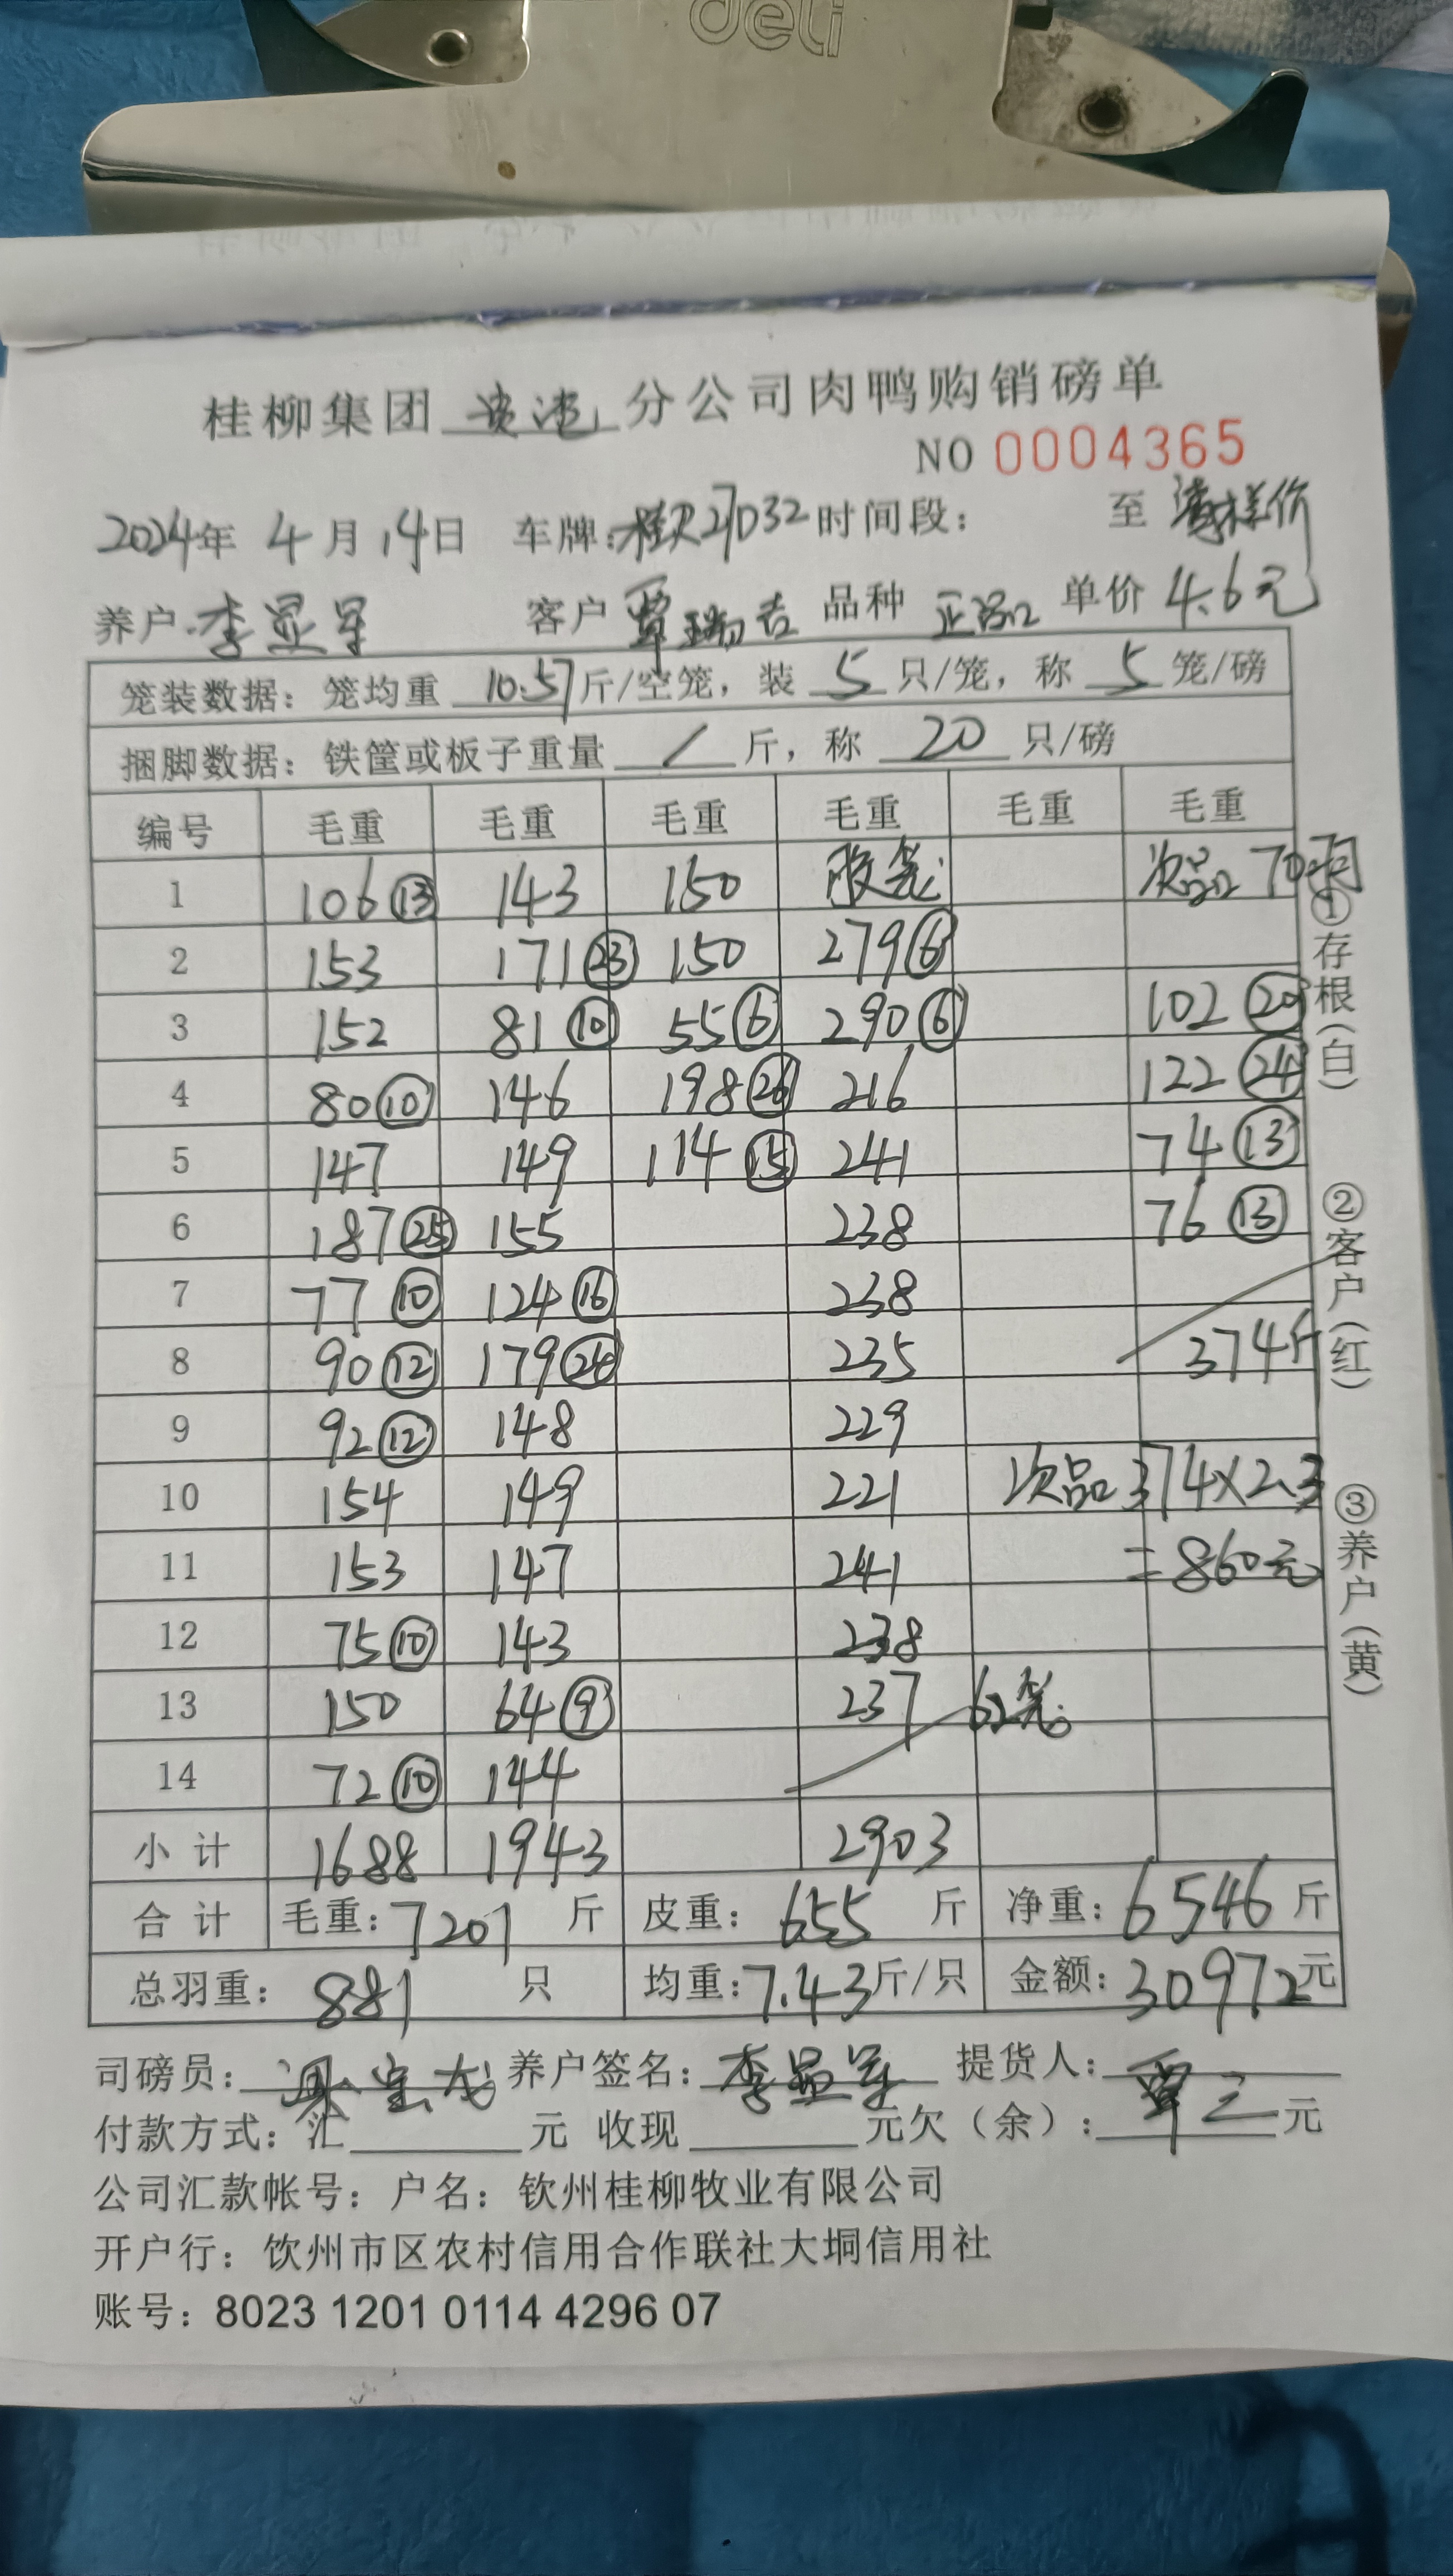 deli
桂柳集团 分公司肉鸭购销磅单
NO 0004365
2024年 4月 14日 车牌: 27032 时间段: 至
养户 李显军 客户 覃瑞吉 品种 正品 单价 4.6元
笼装数据: 笼均重 10.57斤/空笼, 装 5 只/笼, 称 5 笼/磅
捆脚数据: 铁筐或板子重量 / 斤, 称 20 只/磅
编号 毛重 毛重 毛重 毛重 毛重 毛重
1 106⑬ 143 150 胶笼 次品 70
2 153 171㉓ 150 279⑥
3 152 81⑩ 55⑥ 290⑥ 102⑳
4 80⑩ 146 198㉖ 216 122㉔
5 147 149 114⑮ 241 74⑬
6 187㉕ 155 238 76⑬
7 77⑩ 124⑯ 238
8 90⑫ 179 235 374斤
9 92⑫ 148 229
10 154 149 221 次品 374×2.3
11 153 147 241 =860元
12 75⑩ 143 238
13 150 64⑨ 237 62笼
14 72⑩ 144
小计 1688 1943 2903
合计 毛重: 7201 斤 皮重: 655 斤 净重: 6546斤
总羽重: 881 只 均重: 7.43斤/只 金额: 30972元
司磅员: 养户签名: 李显军 提货人: 覃三
付款方式: 汇 元 收现 元欠(余): 元
公司汇款帐号: 户名: 钦州桂柳牧业有限公司
开户行: 饮州市区农村信用合作联社大垌信用社
账号: 8023 1201 0114 4296 07
①存根(白)
②客户(红)
③养户(黄)